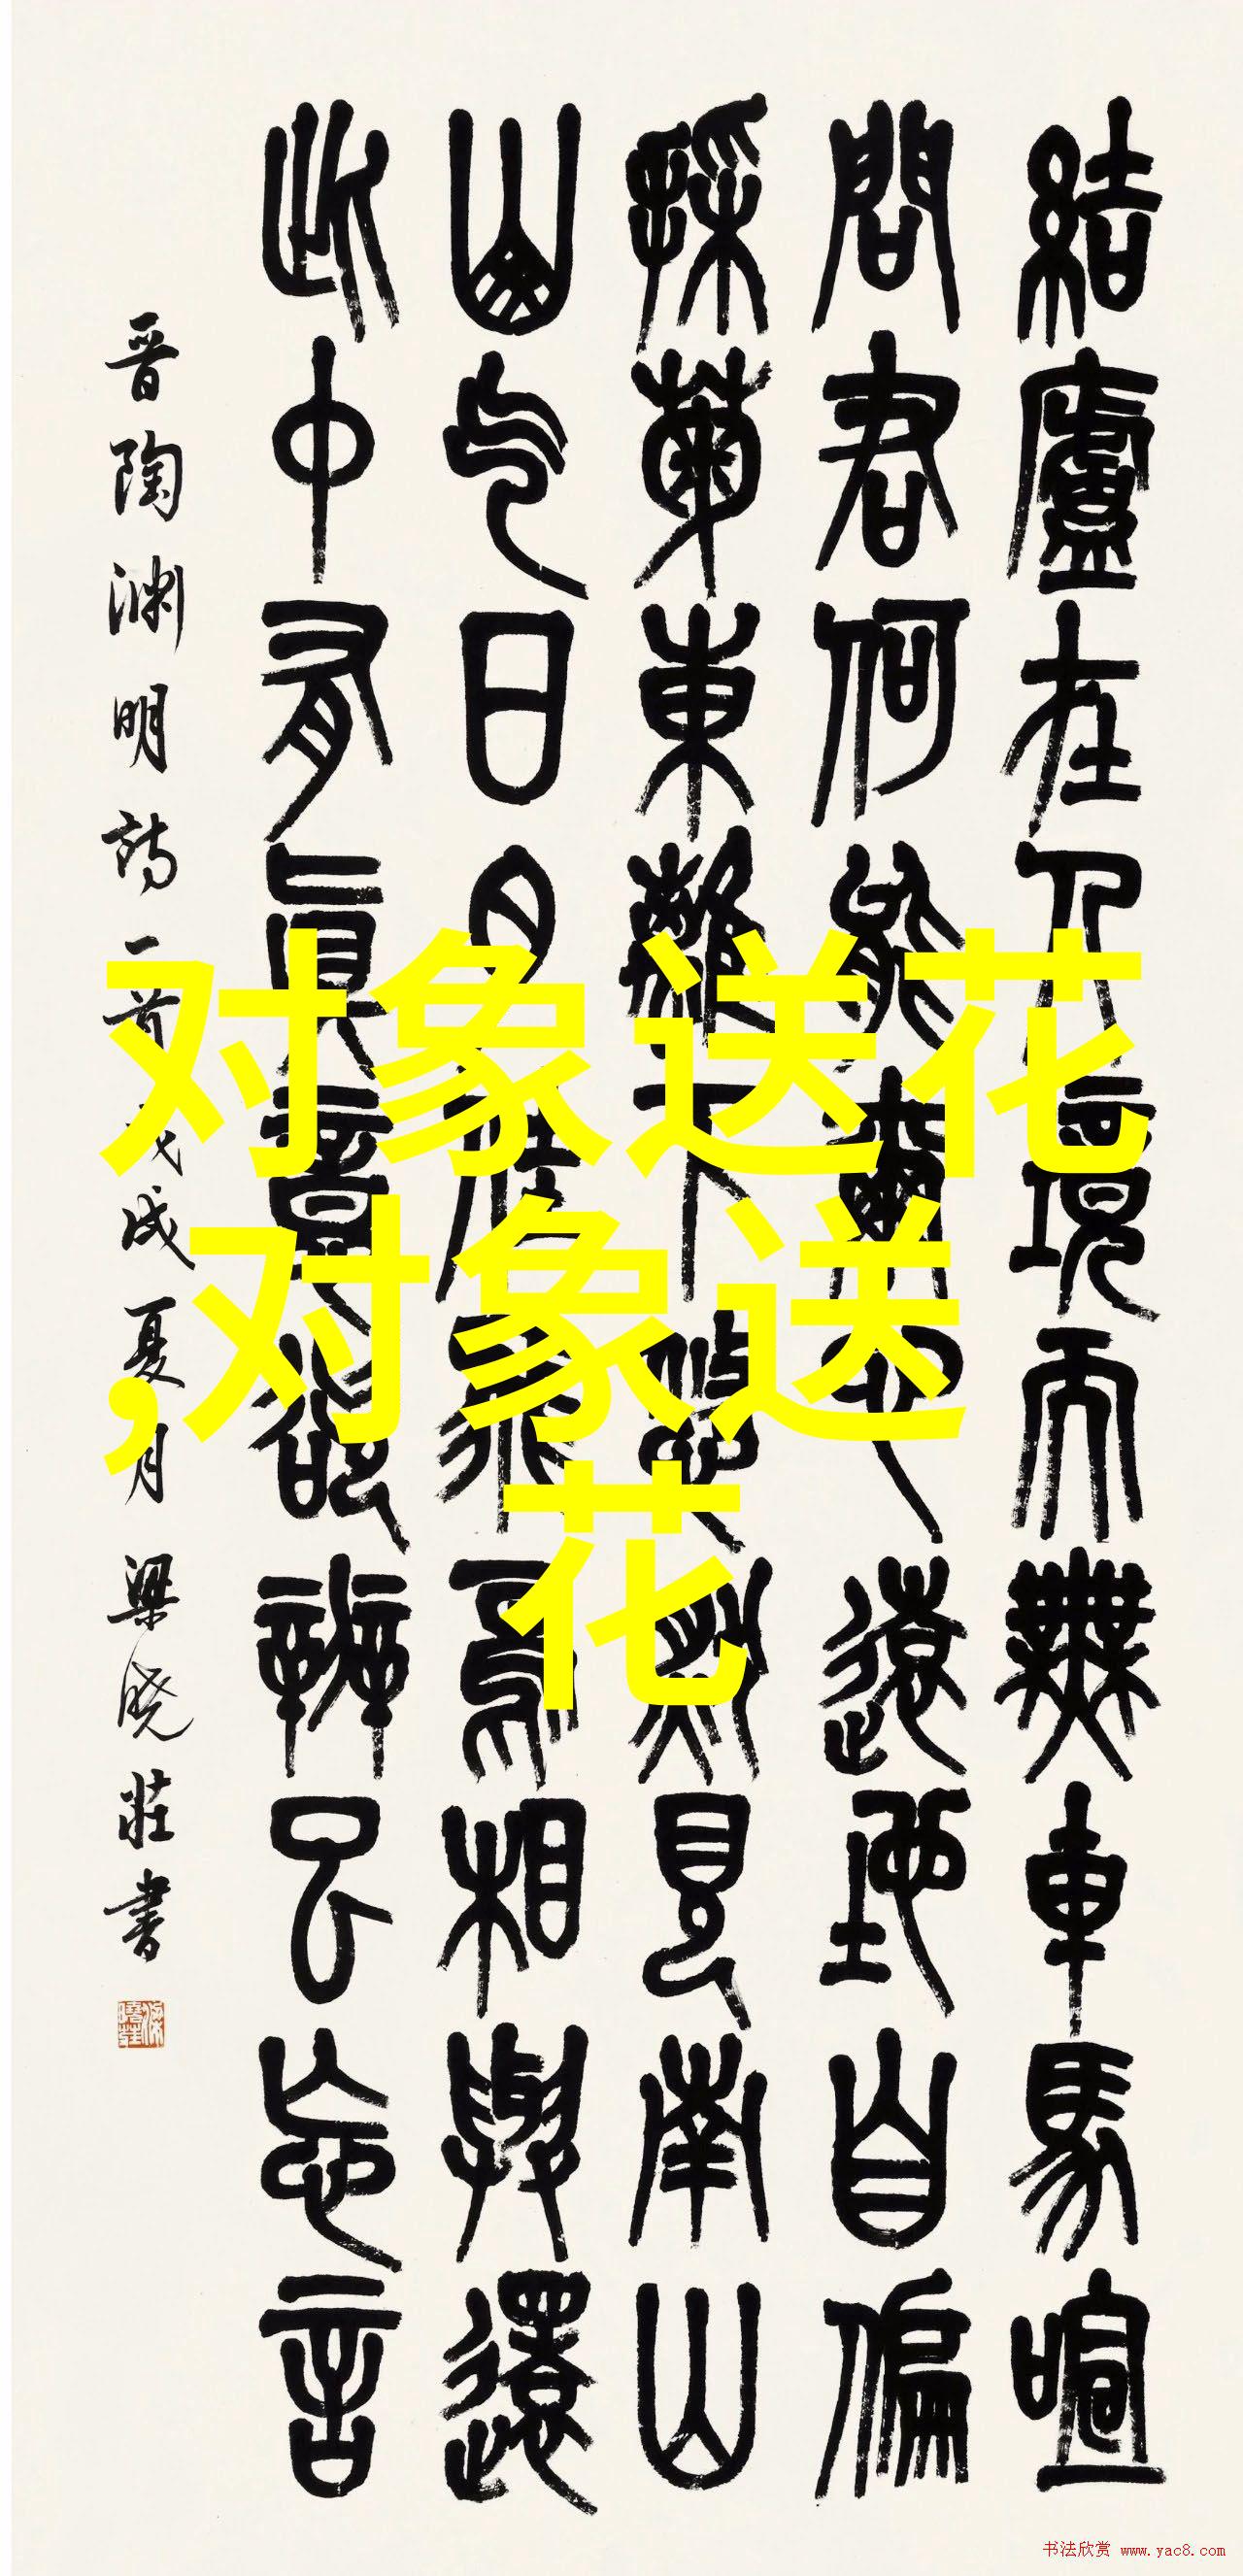 結廬在人境而無車馬喧
問君何能爾心遠地自偏
採菊東籬下悠然見南山
山气日夕佳飛鳥相與還
此中有真意欲辨已忘言
晋陶渊明诗一首戊戌夏月梁晓莊書
对象送花
,对象送
花
书法欣赏 www.yac8.com